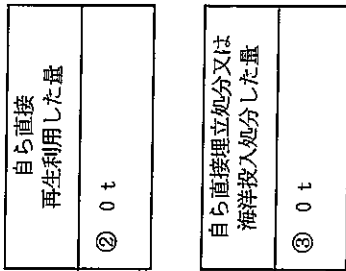 自ら直接
再生利用した量
② 0 t
自ら直接埋立処分又は
海洋投入処分した量
③ 0 t